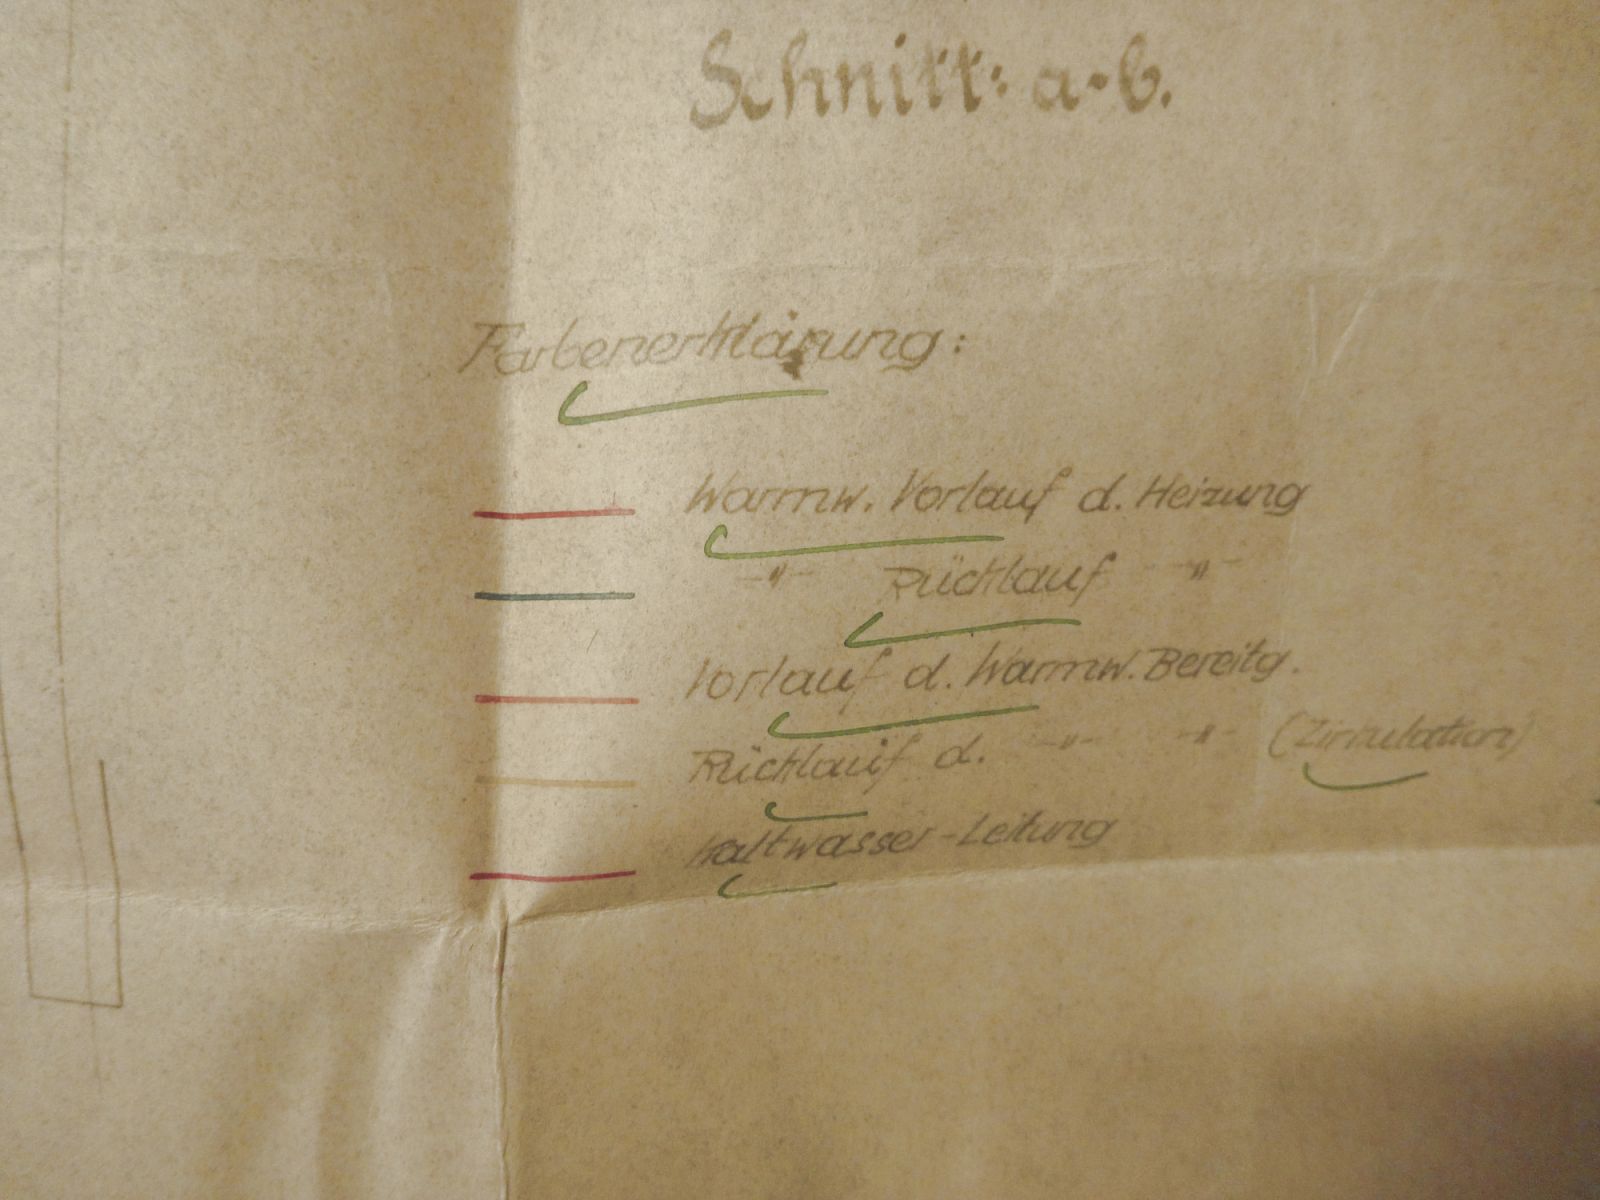 Schnitt: a-b.
Farbenerklärung:
Warmw. Vorlauf d. Heizung
-"- Rücklauf -"-
Vorlauf d. Warmw. Bereitg.
Rücklauf d. -"- -"- (Zirkulation)
Kaltwasser-Leitung